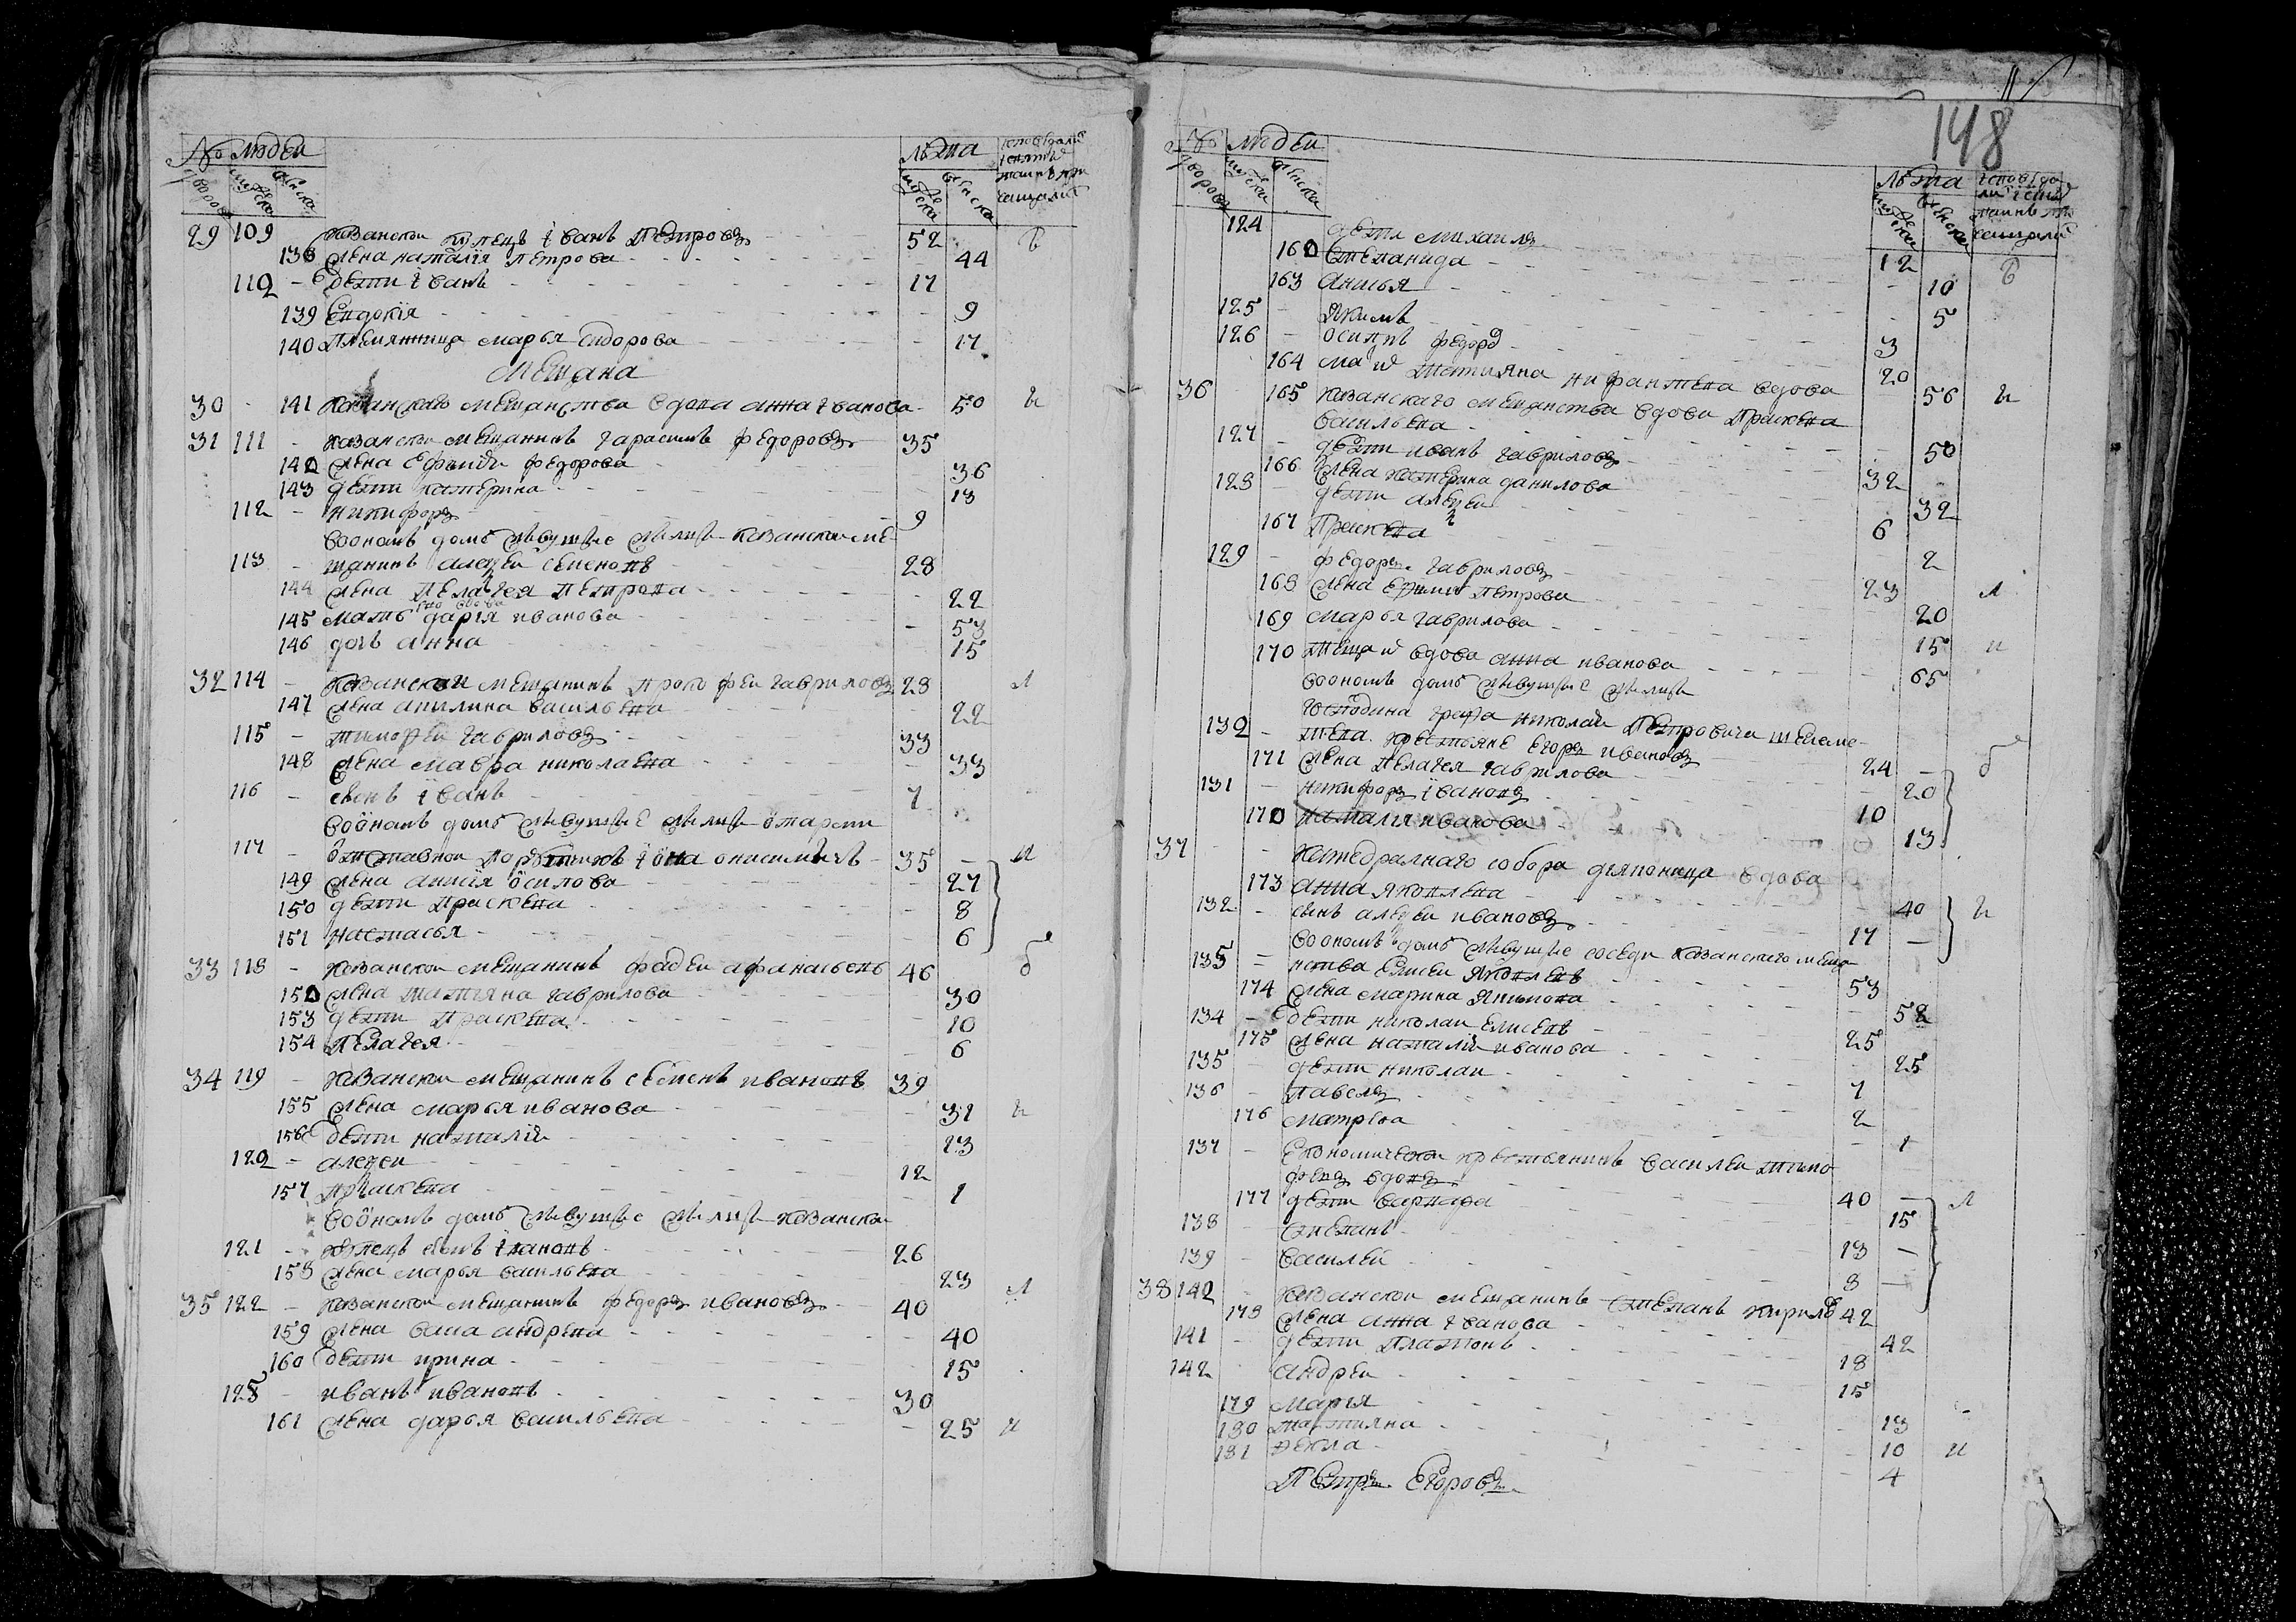 № людеи лѣта
дворовъ мужеска женска мужеска женска
29 109 казанской купецъ іванъ петровъ 52
138 жена наталія петрова 44
110 дети іванъ 17
139 Евдокія 9
140 племянница марья сидорова 17
мещана
30 141 казанскаго мещанства вдова анна іванова 50 и
31 111 казанской мещанинъ гарасимъ федоровъ 35
142 жена федорова 36
143 дети катерина 13
112 никифоръ 9
воономъ доме живущие жилцы казанской ме
113 щанинъ алеѯеи семеновъ 28
144 жена пелагея петрова 22
145 мать его вдова дарія иванова 53
146 дочь анна 15
32 114 казанскои мещанинъ прокофеи гавриловъ 28 л
147 жена акилина васильева 22
115 тимофеи гавриловъ 33
148 жена мавра николаева 33
116 сынъ іванъ 7
воономъ доме живущие жилцы
117 35 л
149 жена анисія осипова 27
150 дети прасковя 8
151 настасья 6
33 118 казанской мещанинъ фадеи афанасьевъ 46 б
152 жена татіяна гаврилова 30
153 дети прасковя 10
154 пелагея 6
34 119 казанской мещанинъ семенъ ивановъ 39
155 жена марья иванова 31 и
156 дети наталія 23
120 алеѯеи 12
157 прасковя 1
воономъ доме живущие жилцы казанской
121 купецъ івановъ 26
158 жена марья васильева 23 л
35 122 казанской мещанинъ федоръ ивановъ 40
159 жена васа андреева 40
160 дети ирина 15
123 иванъ ивановъ 30
161 жена дарья васильева 25 и
148
№ людеи лѣта
дворовъ мужеска женска мужеска женска
124 дети михаилъ 12
162 степанида 10
163 анисья 5
125 якимъ 3
126 осипъ федоровъ 20
164 мать татияна вдова 56 и
36 165 казанскаго мещанства вдова прасковя
васильева 50
127 дети иванъ гавриловъ 32
166 жена катерина данилова 32
128 дети алеѯеи 6
167 прасковя 2
129 федоръ гавриловъ 23 л
168 жена петрова 20
169 марья гаврилова 15 и
170 теща вдова анна иванова 65
воономъ доме живущие жилцы
господина графа николая петровича шереме
130 тева крестьяне егоръ ивановъ 24 б
171 жена пелагея гаврилова 20
131 никифоръ івановъ 10
172 наталія иванова 13
37 катедралнаго собора дияконица вдова
173 анна яковлева 40 и
132 сынъ алеѯеи ивановъ 17
воономъ доме живущие соседи казанскаго меща
133 нства елисеи яковлевъ 53
174 жена марина якимова 58
134 дети николаи елисеевъ 25
175 жена наталія иванова 25
135 дети николаи 7
136 павелъ 2
176 матрена 1
137 економическои крестьянинъ василеи тимо
феевъ вдовъ 40 л
177 дети варвара 15
138 степанъ 13
139 василеи 8
38 140 казанской мещанинъ степанъ кириловъ 42
178 жена анна іванова 42
141 дети платонъ 18
142 андреи 15
179 марья 13
180 татияна 10 и
181 фекла 4
Петръ Егоровъ